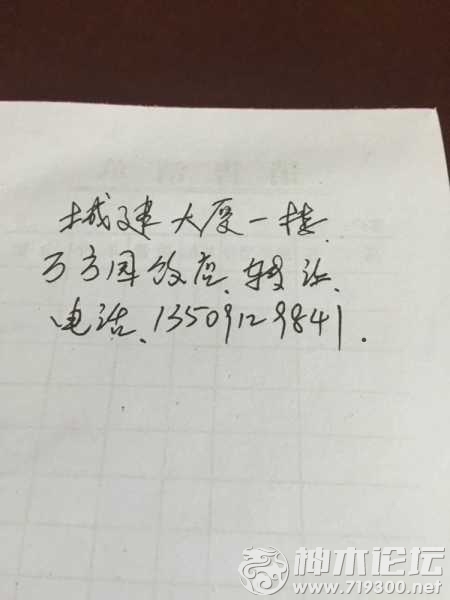 城建大厦一楼
万方园饭店、转让、
电话、13509129841.
神木论坛
www.719300.net